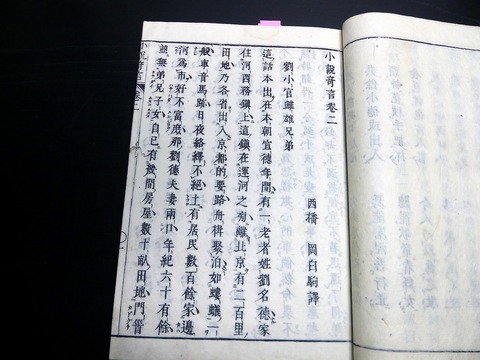 小說奇言卷二
劉小官雌雄兄弟
西播 岡白駒譯
這話本出在本朝宣德年間有一老者姓劉名德家
住河西務鎮上這鎮在運河之旁離北京有二百里
田地乃各省出入京都的要路舟楫聚泊如螞蟻一
般車音馬跡日夜絡繹不絕上有居民數百餘家邊
河爲市好不富庶那劉德夫妻兩口年紀六十有餘
並無弟兄子女自己有幾間房屋數十畝田地門首
小說奇言 卷二